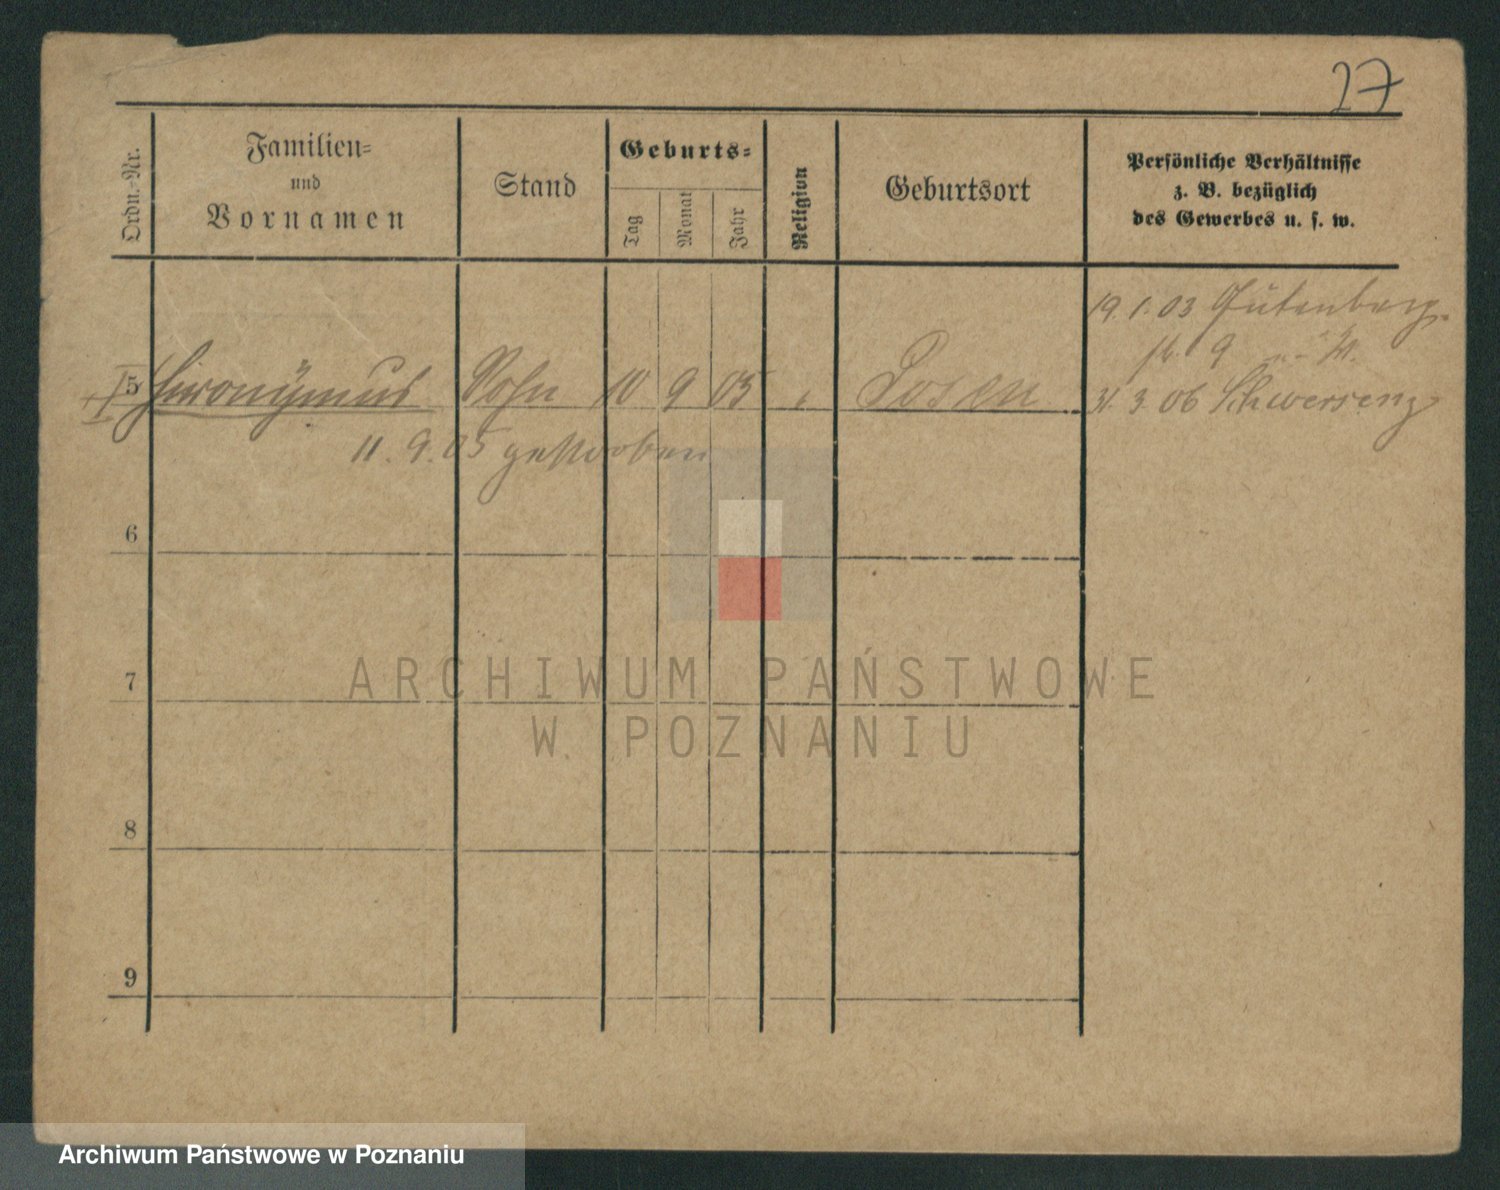 27
Ordn.-Nr.
Familien-
und
Vornamen
Stand
Geburts-
Tag
Monat
Jahr
Religion
Geburtsort
Persönliche Verhältnisse
z. B. bezüglich
des Gewerbes u. s. w.
19. 1. 03 Gutenberg-
9
5 Hieronymus Sohn 10 9 05 Posen
31. 3. 06 Schwersenz
11. 9. 05 gestorben
6
7
8
9
ARCHIWUM PAŃSTWOWE
W POZNANIU
Archiwum Państwowe w Poznaniu